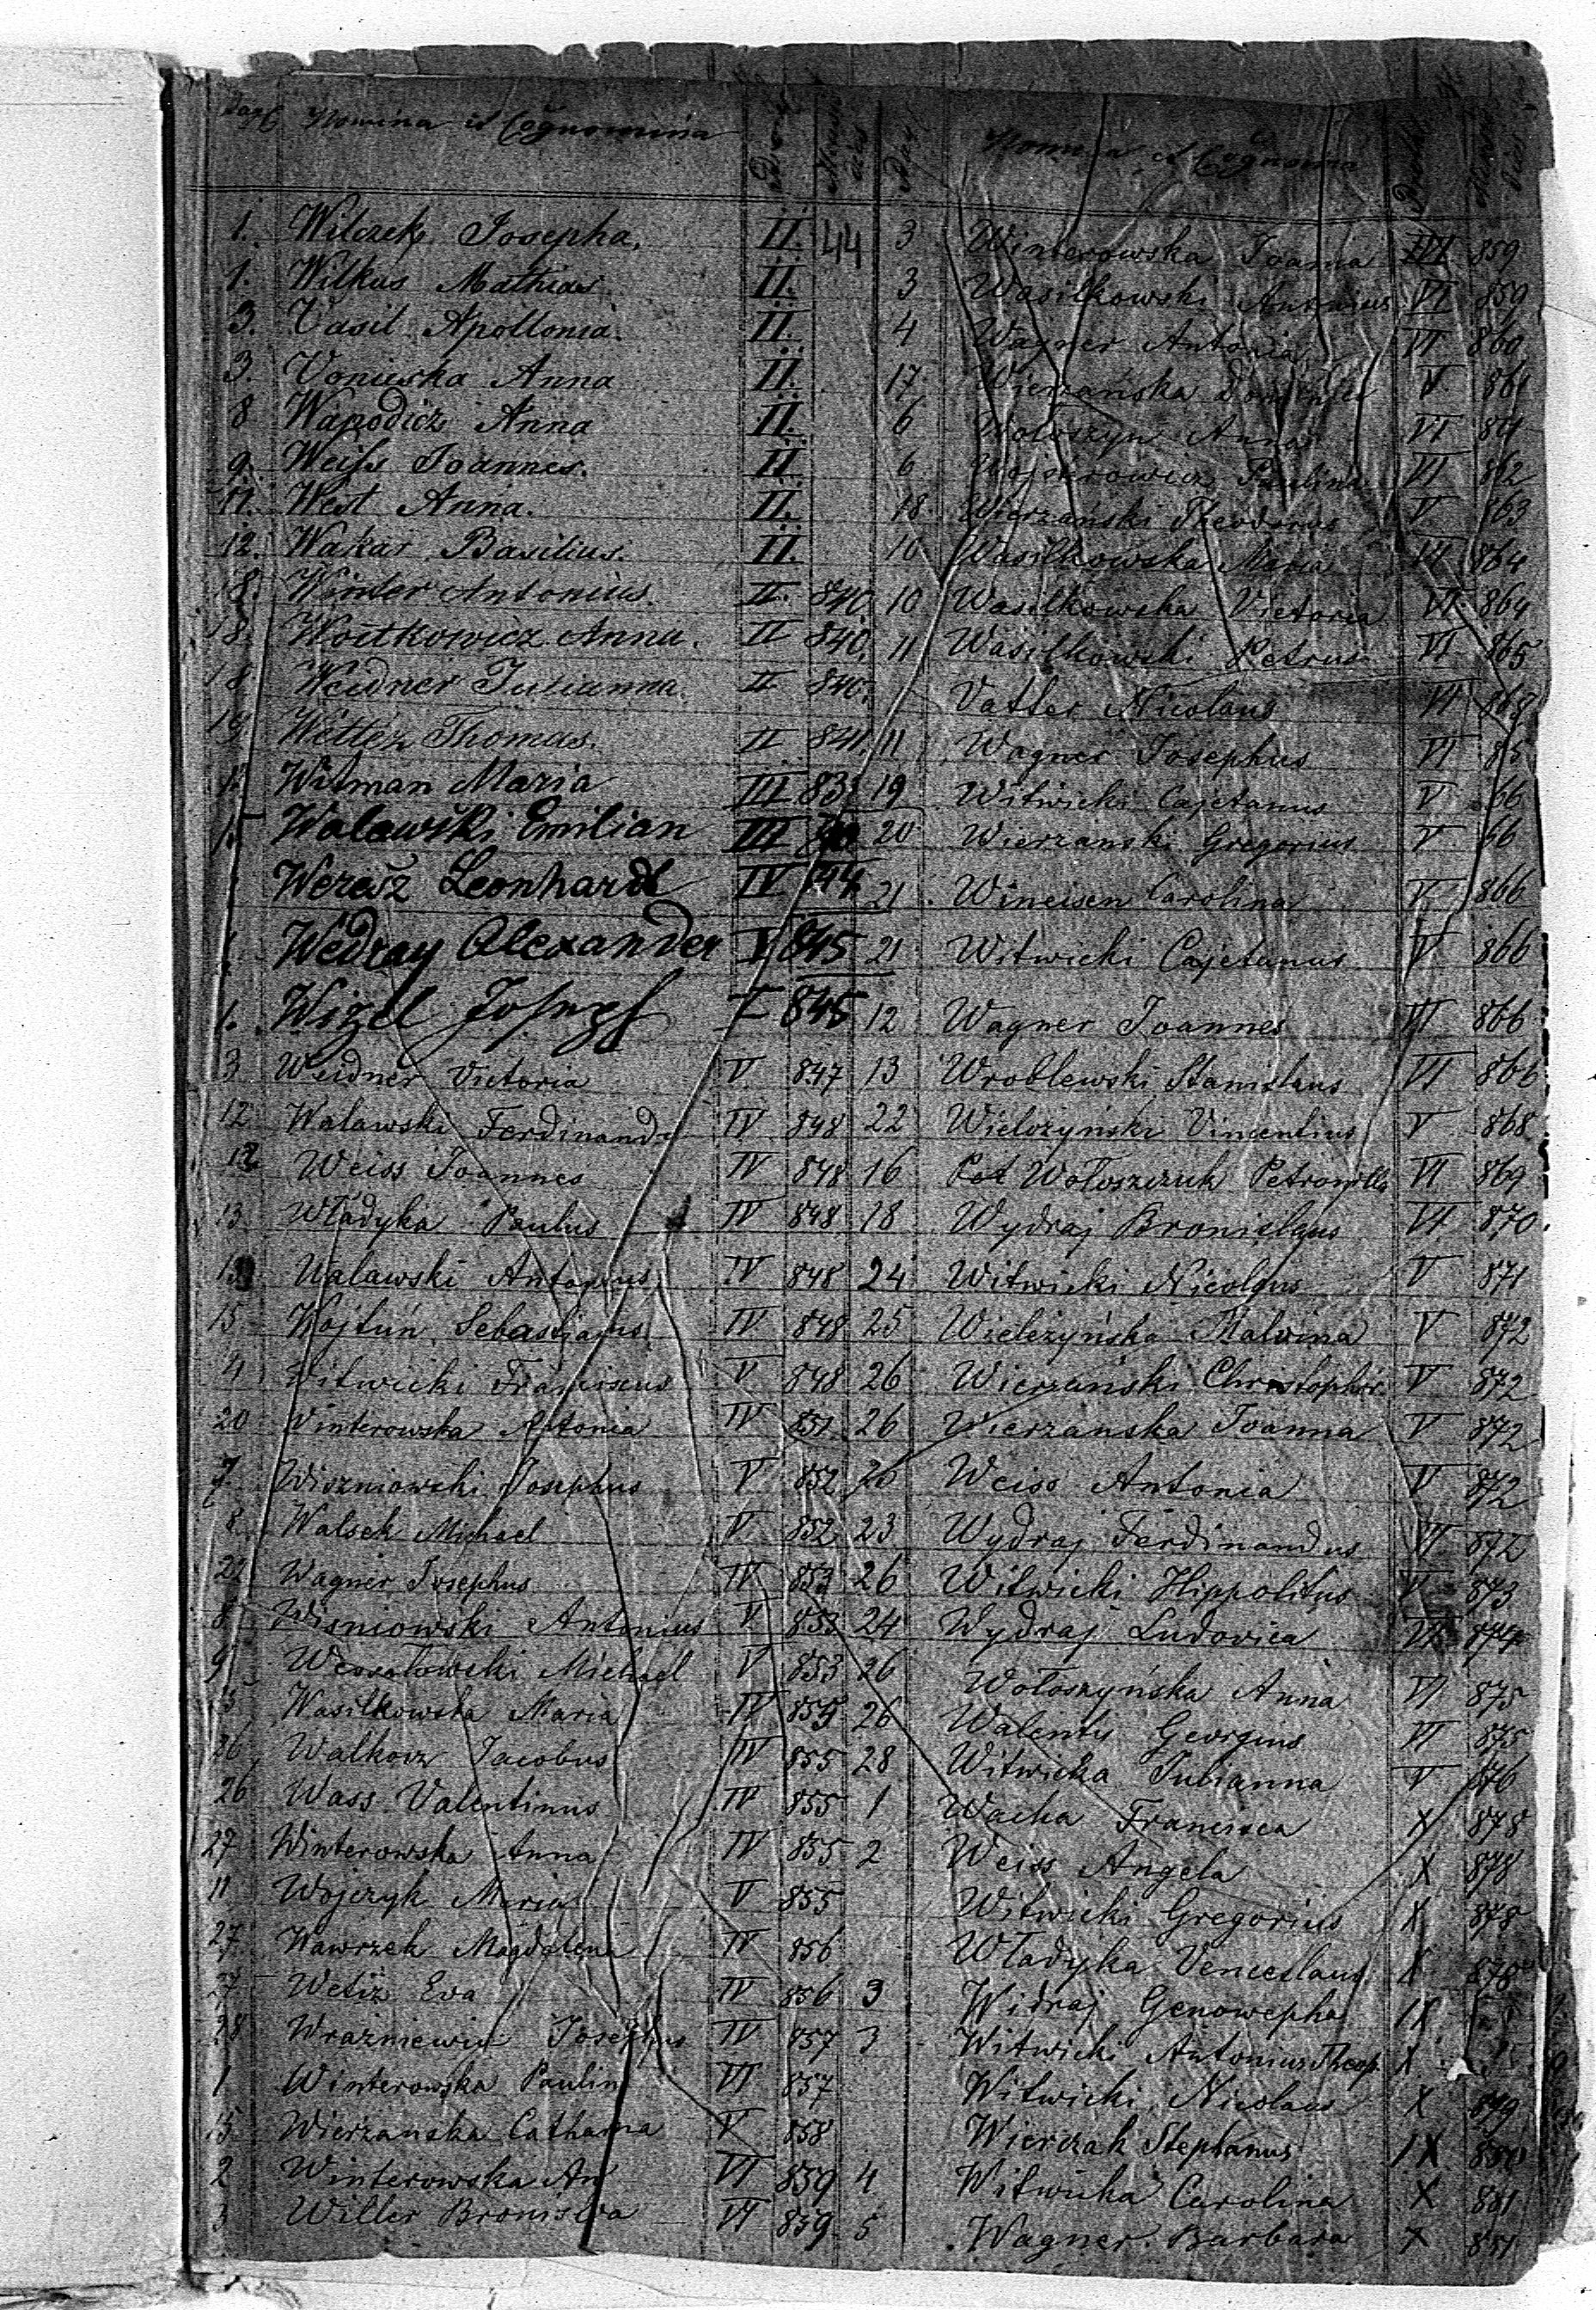 Pag Nomina et Cognomina
1. Wilczek Josepha. II. 44
1. Wilkus Mathias II.
3. Vasil Apollonia. II.
3. Anna II.
8 Wapodicz Anna II.
9. Weiss Joannes. II
11. West Anna. II.
12. Wakar Basilius. II.
18. Winter Antonius. II. 840
18. Woitkowicz Anna. II 840.
18. Weidner Julianna. II 840.
19. Thomas. II 841.
1. Witman Maria III 83
1. Walawski Emilian III
Leonhard IV
Wedray Alexander V 845
1. Wizel Joszef V 845
3 Weidner Victoria V. 847
12 Walawski Ferdinand IV 848
12 Weiss Joannes IV 848
13 Władyka Paulus IV 848
13 Walawski Antonius IV 848
15 Wojtuń Sebastjanus IV 848
4 Witwicki Franciscus V 848
20 Winterowska Antonia IV 851
7 Wiszniowski Josephus V 852
8 Walsek Michael V. 852
22 Wagner Josephus IV 853
8 Wisniowski Antonius V 853
9 Michael V 853
Wasilkowska Maria IV 855
26 Jacobus IV 855
26 Wass Valentinus IV 855
27 Winterowska Anna IV 855
11 Wojczyk Maria V 855
27 Wawrzek Magdalena IV 856
27 Eva IV 856
28 Josephus IV 857
1 Winterowska Paulin VI 857
15 Wierzanska Catharina V 858
2 Winterowska An VI 859
3 Willer Bronislva VI 859
Nomina et Cognomina
3 Winterowska Joanna VI 859
3 Wasilkowski Antonius VI 859
4 Wagner Antonia VI 860
17 Wierzańska V. 861
6 Wołoszyn Anna VI
6 Paulina VI 862
18 Wierzański Theodorus V. 863
10 Wasilkowska Maria VI 864
10 Wasilkowska Victoria VI. 864
11 Wasilkowski Petrus VI 865
Vatter Nicolaus VI
11 Wagner Josephus VI 65
19 Witwicki Cajetanus V 66
20 Wierzanski Gregorius V 66
21 Wineisen Carolina V 866
21 Witwicki Cajetanus V 866
12 Wagner Joannes VI 866
13 Wroblewski Stanislaus VI 866
22 Wielożyński Vincentius V 868
16 Pet Wołoszczuk Petronilla VI 869
18 Wydraj Bronislaus VI 870.
24 Witwicki Nicolaus V 871
25 Wieleżyńska Malvina V 872
26 Wierzański Christophor. V 872
26 Wierzanska Joanna V 872
26 Weiss Antonia V 872
23 Wydraj Ferdinandus VI 872
26 Witwicki Hippolitus V 873
24 Wydraj Ludovica VI 874
26 Wołoszyńska Anna VI 875
26 Walenty Georgius VI 875
28 Witwicka Julianna V 876
1 Wacha Francisca X 878
2 Weiss Angela X 878
Witwicki Gregorius X 878
Władyka Venceslaus X 878
3 Widraj Genowepha IX
3 Witwicki Antonius Theop. X
Witwicki Nicolaus X 879
Wierczak Stephanus IX 880
4 Witwicka Carolina X 881
5 Wagner Barbara X 881